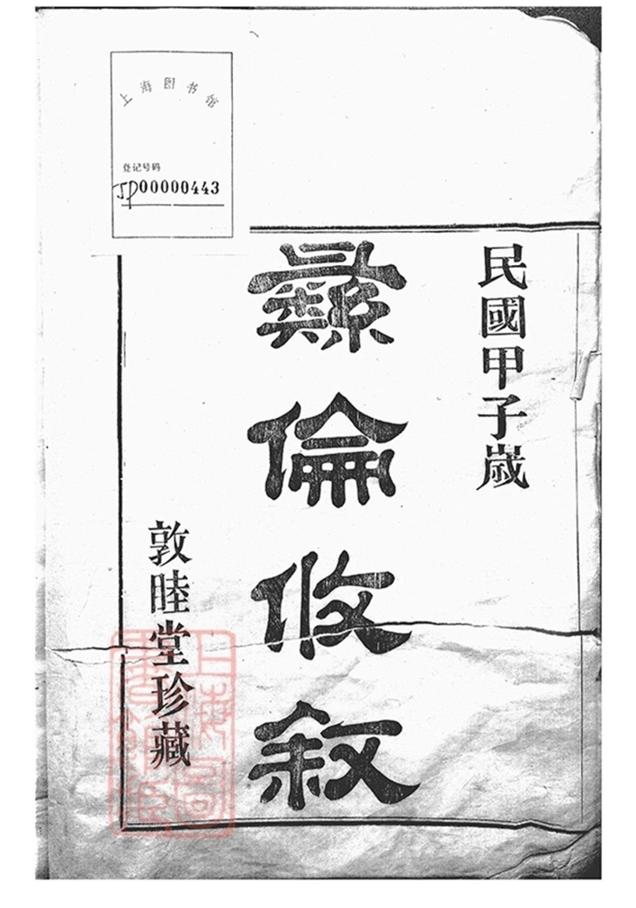 上海图书馆
登记号码
JP00000443
民國甲子歳
彜倫攸敘
敦睦堂珍藏